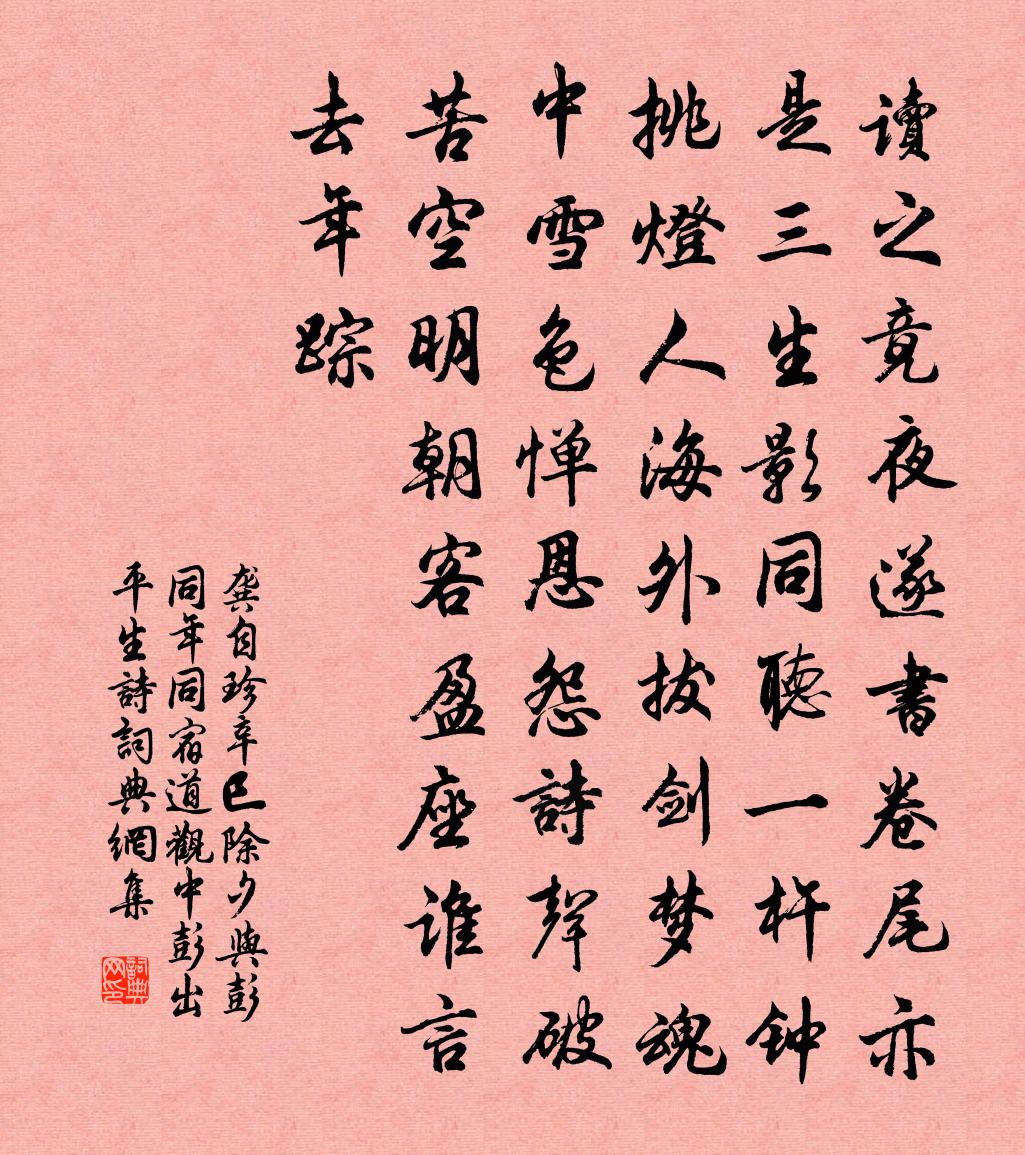 讀之竟夜遂書卷尾亦
是三生影同聽一杵钟
挑燈人海外拔剑梦魂
中雪色惮恩怨詩聲破
苦空明朝客盈座谁言
去年踪
龚自珍辛巳除夕與彭
同年同宿道觀中彭出
平生詩詞典網集
詞典
网印